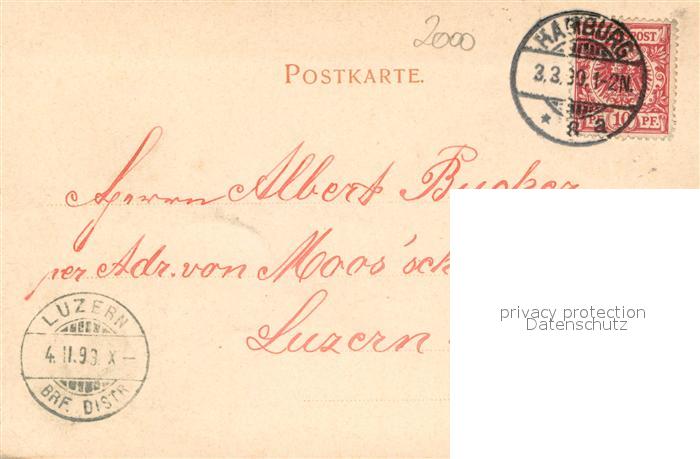 2000
POSTKARTE.
HAMBURG
3.3.99.1-2N.
* 8 a
POST
10 PF.
Herrn Albert Bucher
per Adr. von Moos'sch
Luzern
LUZERN
4.II.99.X-
BRF. DISTR.
privacy protection
Datenschutz